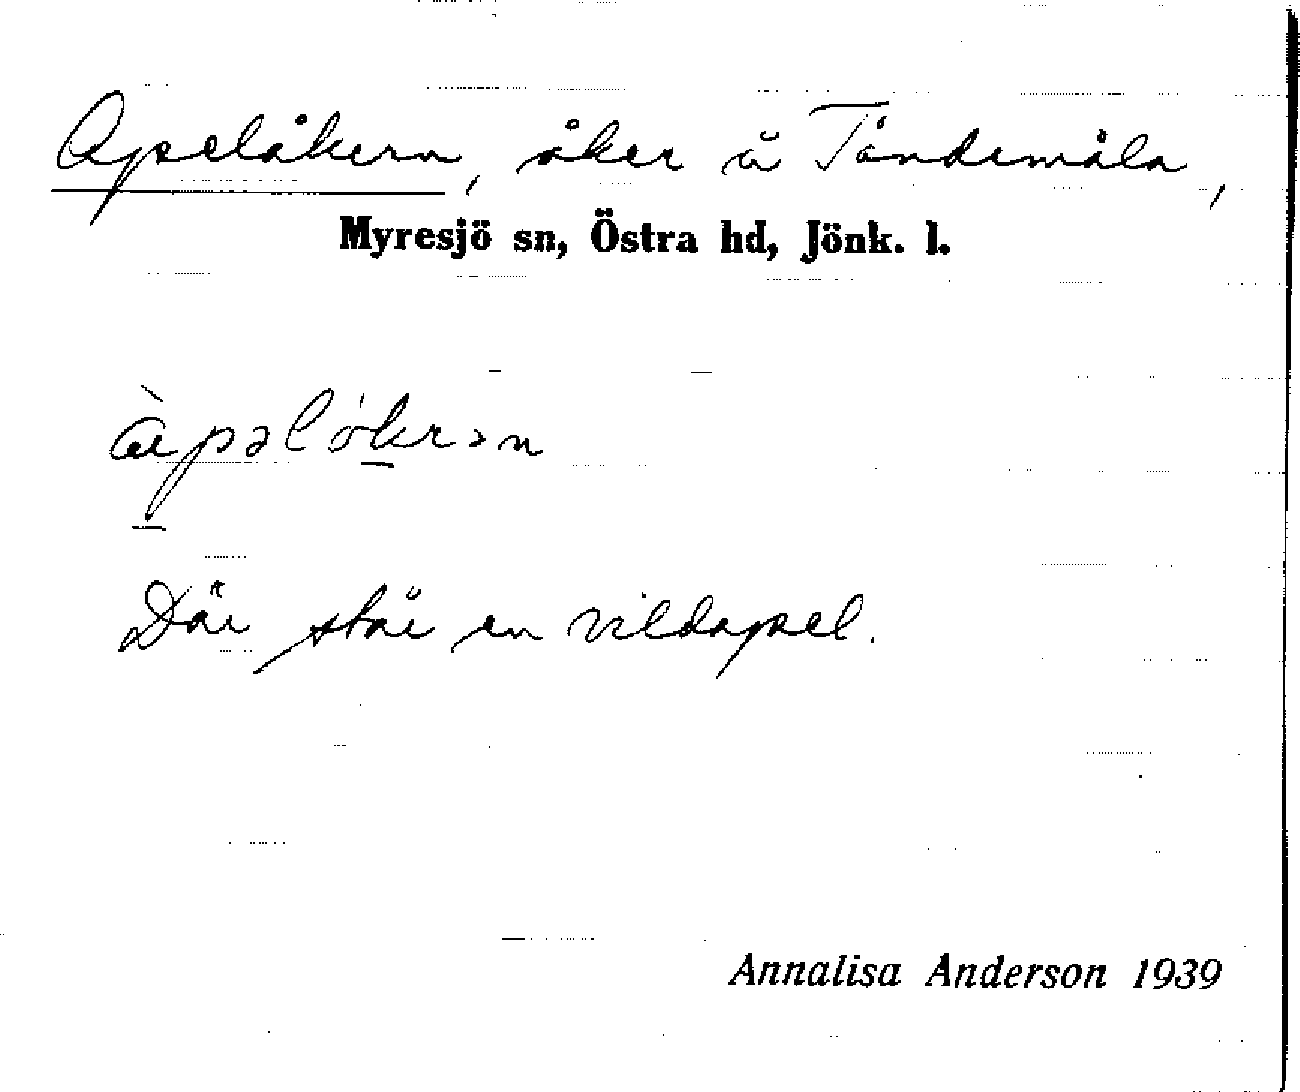 Apelåkern, åker å Tåndemåla,
Myresjö sn, Östra hd, Jönk. l.
àpəlåkrən
Där står en vildapel.
Annalisa Anderson 1939